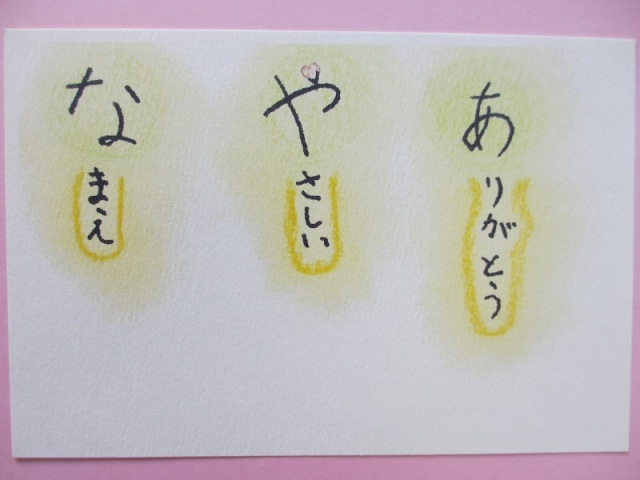 ありがとう
やさしい
なまえ